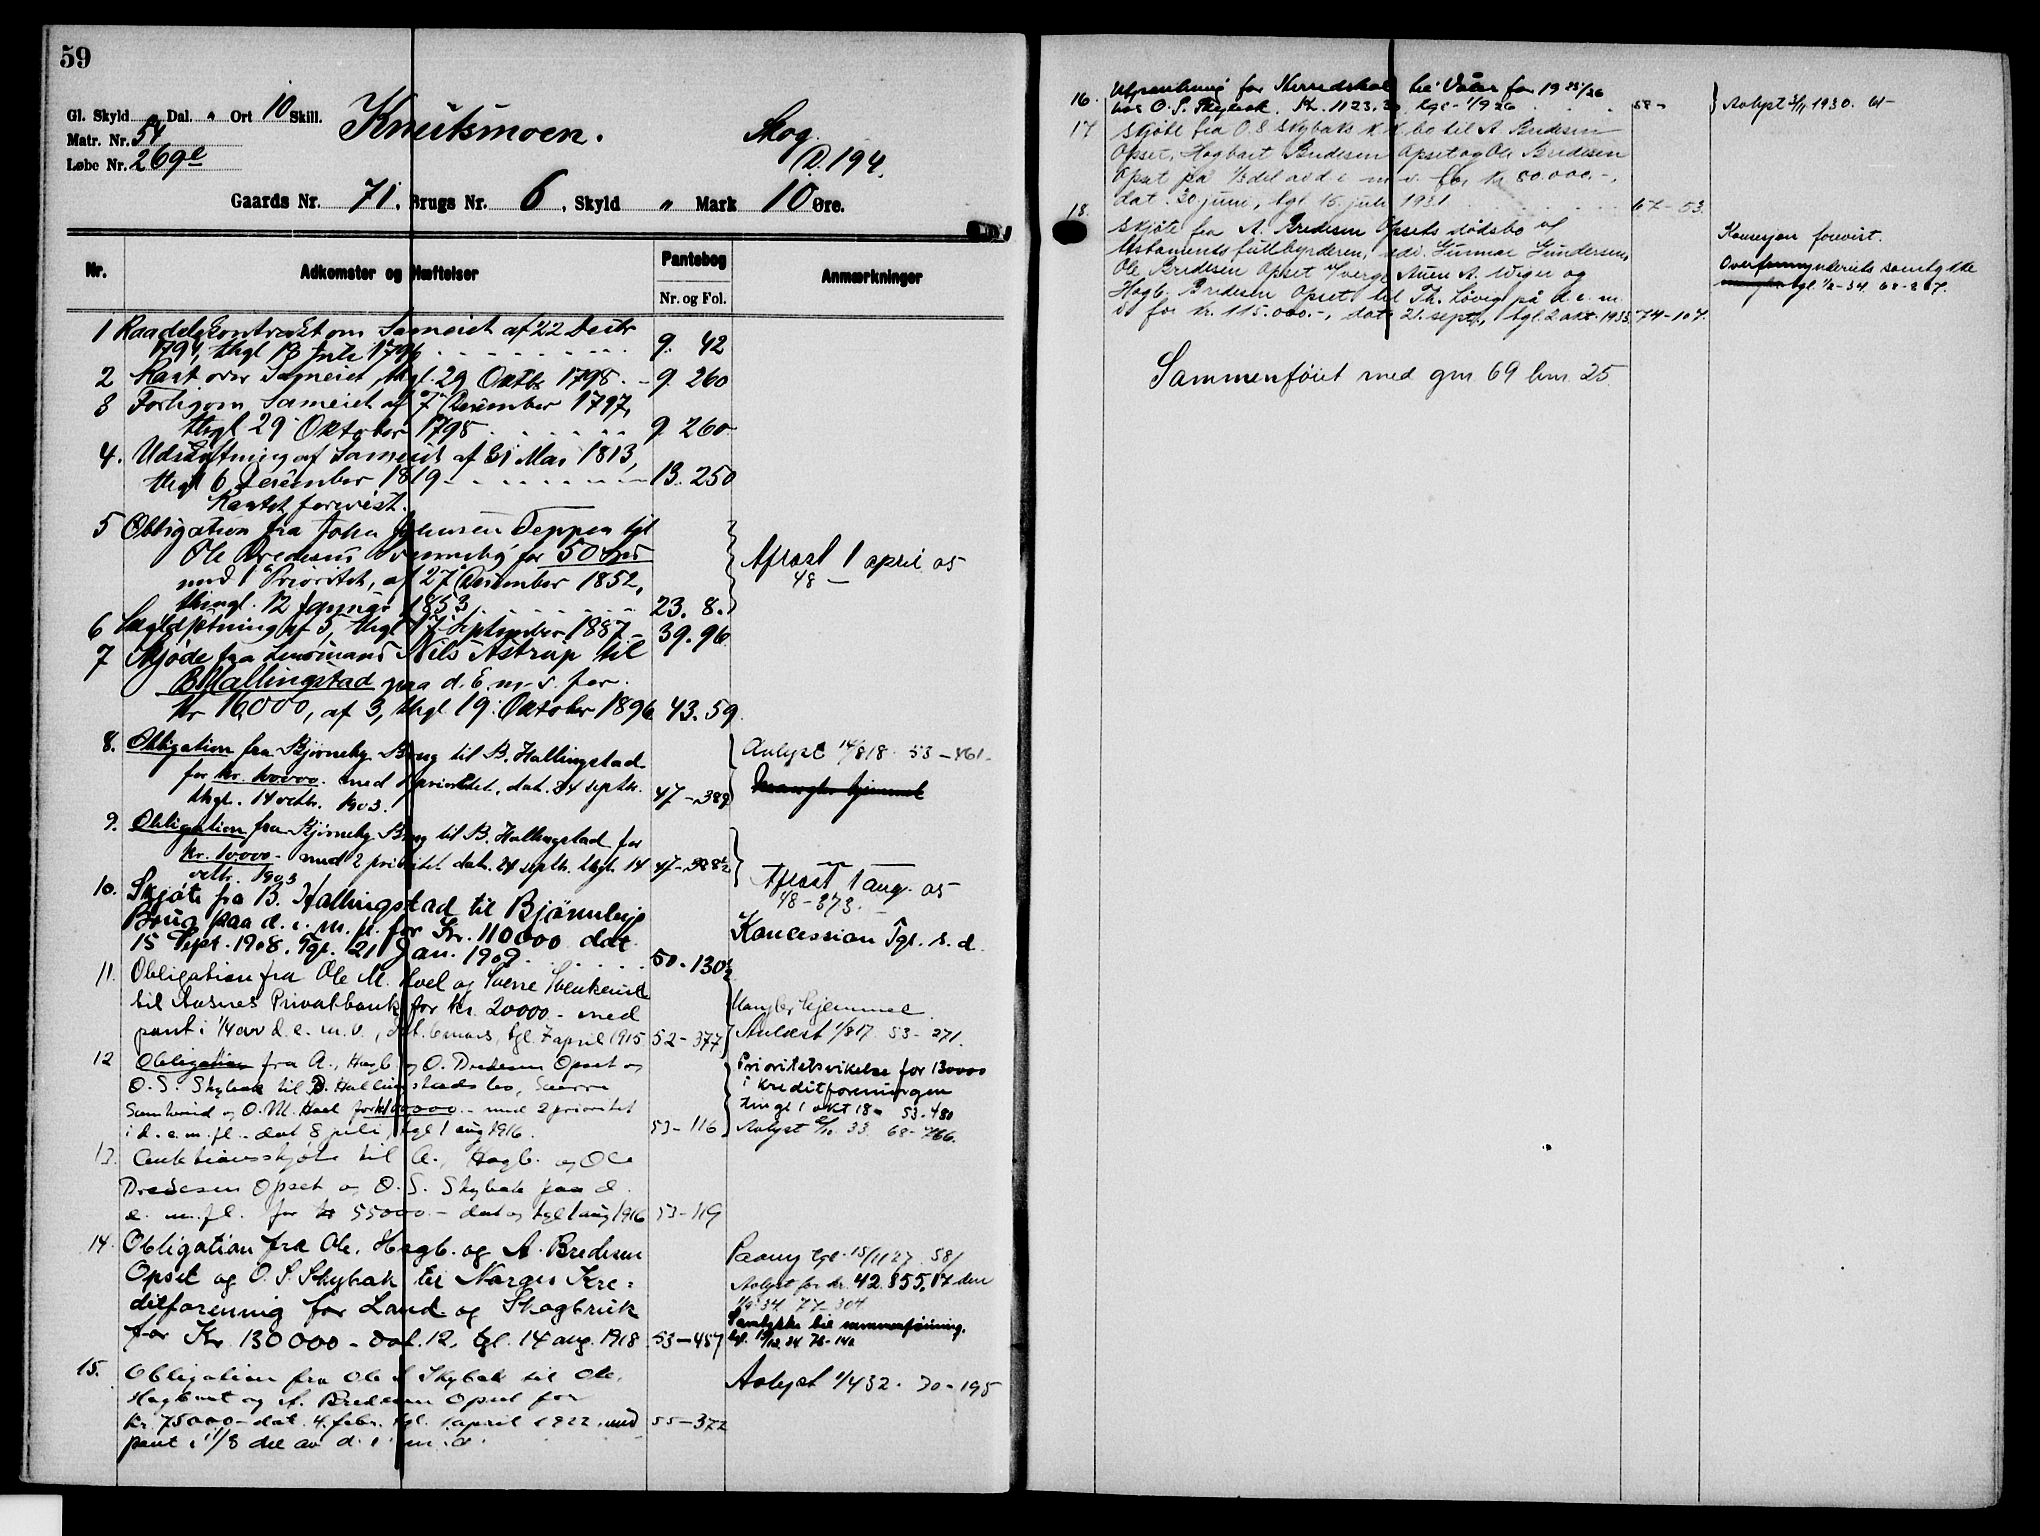 59
Gl. Skyld „ Dal. „ Ort 10 Skill.
Matr. Nr. 54
Løbe Nr. 269e
Knutsmoen.
Skog.
D. 194.
Gaards Nr. 71, Brugs Nr. 6, Skyld „ Mark 10 Øre.
Nr. Adkomster og Hæftelser Pantebog Anmærkninger
Nr. og Fol.
1 Raadelskontrakt om Sameiet af 22 Decbr
1794, thgl 18 Juli 1796 9. 42
2 Kart over Sameiet, thgl. 29 Oktbr 1798. 9 260
3 Forlig om Sameiet af 7 December 1797,
thgl 29 Oktober 1798 9 260
4. Udskiftning af Sameiet af 31 Mai 1813,
thgl 6 December 1819 13. 250
Kartet forevist.
5 Obligation fra John Johnsen Teppen til
Ole Bredesen for 50
med 1 Prioritet, af 27 December 1852,
thingl. 12 Januar 1853 23. 8.
Aflæst 1 april 05
48 —
6 Skyldsætning af 5, thgl 17 September 1887 39. 96
7 Skjøde fra Lensmand Nils Astrup til
B. Hallingstad paa d. E. m. v. for
Kr 16,000, af 3, thgl 19 Oktober 1896 43. 59.
8. Obligation fra Bjørneby Brug til B. Hallingstad
for kr. 100000. med 1 prioritet, dat. 24 septbr.
thgl. 14 octbr. 1903. 47-389
Avlyst 14/8 18. 53-461.
Mangler hjemmel
9. Obligation fra Bjørneby Brug til B. Hallingstad for
kr. 10000 - med 2 prioritet dat. 24 septbr. thgl. 14
octbr. 1903 47-
Aflæst 1 aug. 05
48-373.
10. Skjøte fra B. Hallingstad til Bjørneby
Brug paa d. e. m. fl. for Kr. 110000 dat.
15 Sept. 1908. Tgl. 21 Jan. 1909. 50-130½
Koncession Tgl. s. d.
11. Obligation fra Ole M. Hoel og Sverre
til Aasnes Privatbank for kr. 20000.- med
pant i ¼ av d. e. m. v., dat. 6 mars, tgl. 7 april 1915 52-377
Mangler hjemmel.
Avlæst 1/8 17. 53-271.
12 Obligation fra A., Hagb. og O. Bredesen Opset og
O. S. Skybak til B. Hallingstads bo, Sverre
og O. M. Hoel for kr 100000.- med 2 prioritet
i d. e. m. fl. - dat 8 juli, tgl 1 aug 1916. 53-116
Prioritetsvikelse for 130000
i kreditforeningen
tingl 1 okt 18. 53-480
Avlyst 33. 68-766.
13. Auktionsskjøte til A., Hagb. og Ole
Bredesen Opset og O. S. Skybak paa d.
e. m. fl. for kr 55000.- dat og tgl 1 aug 1916 53-119
14. Obligation fra Ole, Hagb. og A. Bredesen
Opset og O. S. Skybak til Norges Kre-
ditforening for Land- og Skogbruk
for Kr. 130000 - Dat. 12, tgl. 14 aug. 1918. 53-457
tgl. 15/11 27. 58/
Avlyst for kr. 42.855,17 den
1/9 34. 77-304
Samtykke til sammenføining.
tgl. 34 78-140
15. Obligation fra Ole S Skybak til Ole,
Hagbart og A. Bredesen Opset for
Kr. 75000- dat. 4. febr. tgl. 1 april 1922. med
pant i 1/3 del av d. e. m. v. 55-372
Avlyst 1/4 32. 70-195
16. Utpantning for Herredskat til Vaaler for 1925/26
hos O. S. Skybak. Kr. 1123. tgl. 1/9 26 58-
Avlyst 1930. 61-
17 skjøte fra O. S Skybaks K K bo til A Bredesen
Opset, Hagbart Bredesen Opset og Ole Bredesen
Opset på 1/3 del av d. e. m. v. for kr 80.000.-,
dat. 30 juni, tgl. 15. juli 1931 67-53.
18. Skjøte fra A. Bredesen Opsets dødsbo v/
testamentsfullbyrderen, adv. Gunnar Gundersen,
Ole Bredesen Opset v/verge A. og
Hagb. Bredesen Opset til Th. Løvig på d. e. m.
v for kr. 115.000.-, dat. 21. sept., tgl. 2 okt. 1933 74-107.
Konsesjon forevist.
Overformynderiets samtykke
mangler tgl. 34 68-
Sammenføiet med gnr. 69 bnr. 25.